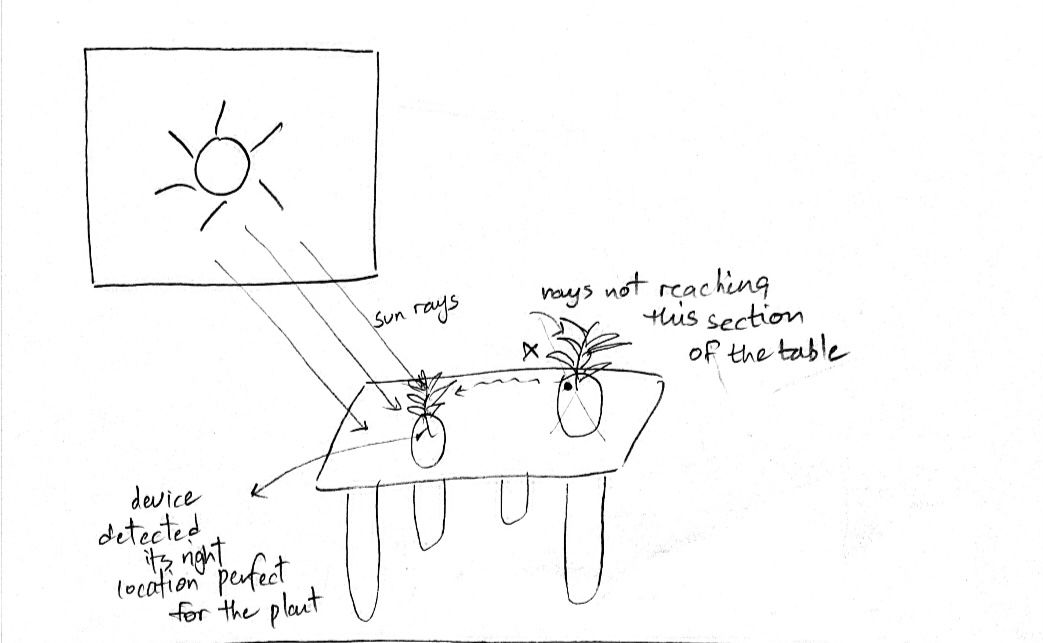 sun rays
rays not reaching
this section
of the table
x
device
detected
its right
location perfect
for the plant